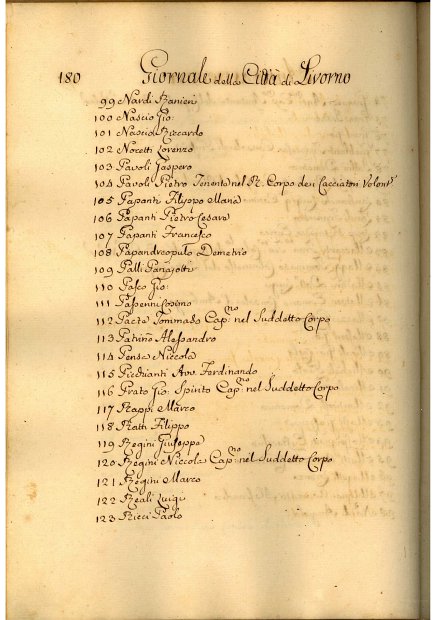 180 Giornale della Città di Livorno
99 Nardi Ranieri
100 Nascio Gio:
101 Nascio Riccardo
102 Nocetti Lorenzo
103 Pavoli Gaspero
104 Pavoli Pietro Tenente nel R. Corpo de Cacciatori Volont.ri
105 Papanti Filippo Maria
106 Papanti Pietro Cesare
107 Papanti Francesco
108 Papandreopulo Demetrio
109 Palli Panajotti
110 Pasco Gio:
111 Passerini Cosimo
112 Pacta Tommaso Cap.no nel Suddetto Corpo
113 Patrino Alessandro
114 Pensa Niccola
115 Piccianti Avv. Ferdinando
116 Prato Gio: Spirito Cap.no nel Suddetto Corpo
117 Rappi Marco
118 Ratti Filippo
119 Regini Giuseppe
120 Regini Niccola Cap.no nel Suddetto Corpo
121 Regini Marco
122 Reali Luigi
123 Ricci Paolo